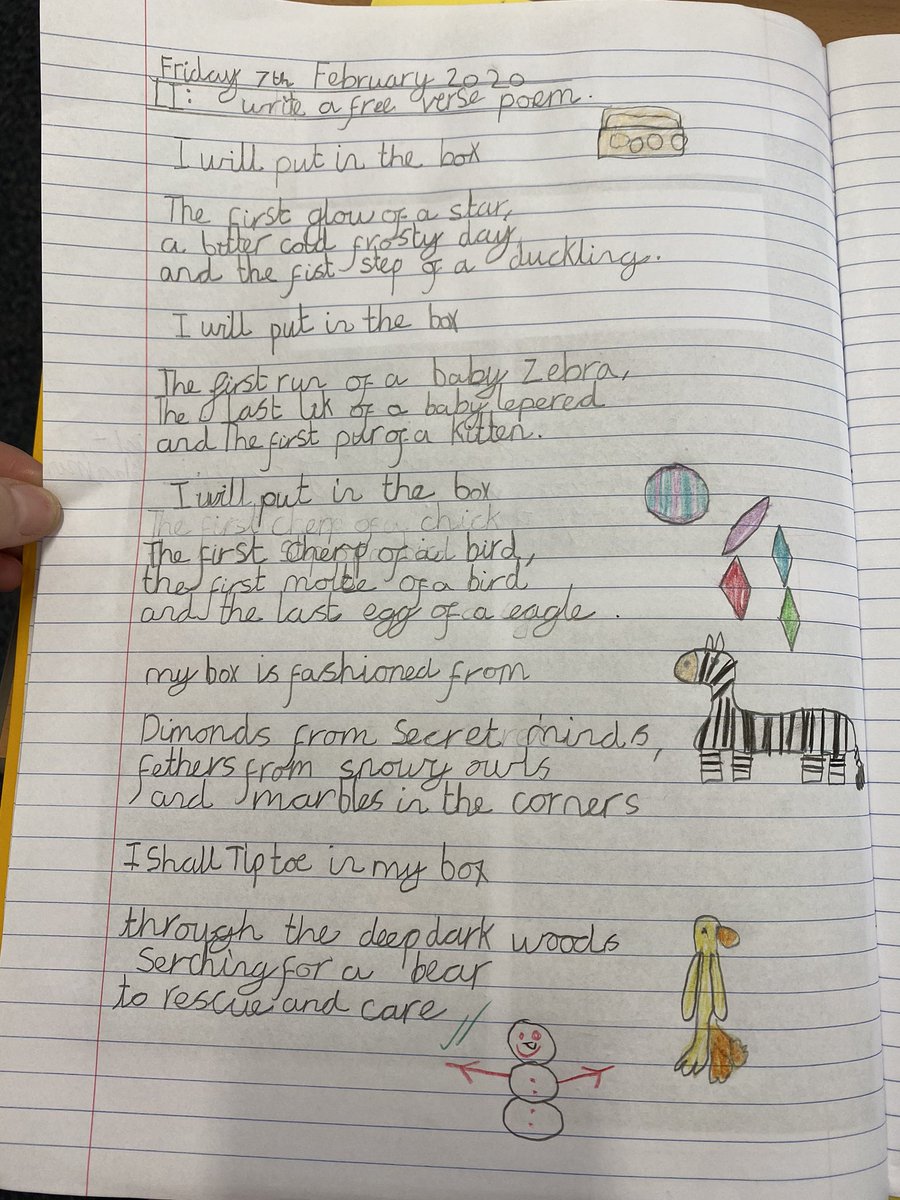 Friday 7th February 2020
LI: write a free verse poem.
I will put in the box
The first glow of a star,
a bitter cold frosty day,
and the fist step of a duckling.
I will put in the box
The first run of a baby Zebra,
The last lik of a baby lepered
and The first pur of a Kitten.
I will put in the box
The first cherp of a chick
The first cherp of a bird,
the first molte of a bird
and the last egg of a eagle.
my box is fashioned from
Dimonds from Secret minds,
fethers from snowy owls
and marbles in the corners
I Shall Tip toe in my box
through the deep dark woods
Serching for a bear
to rescue and care